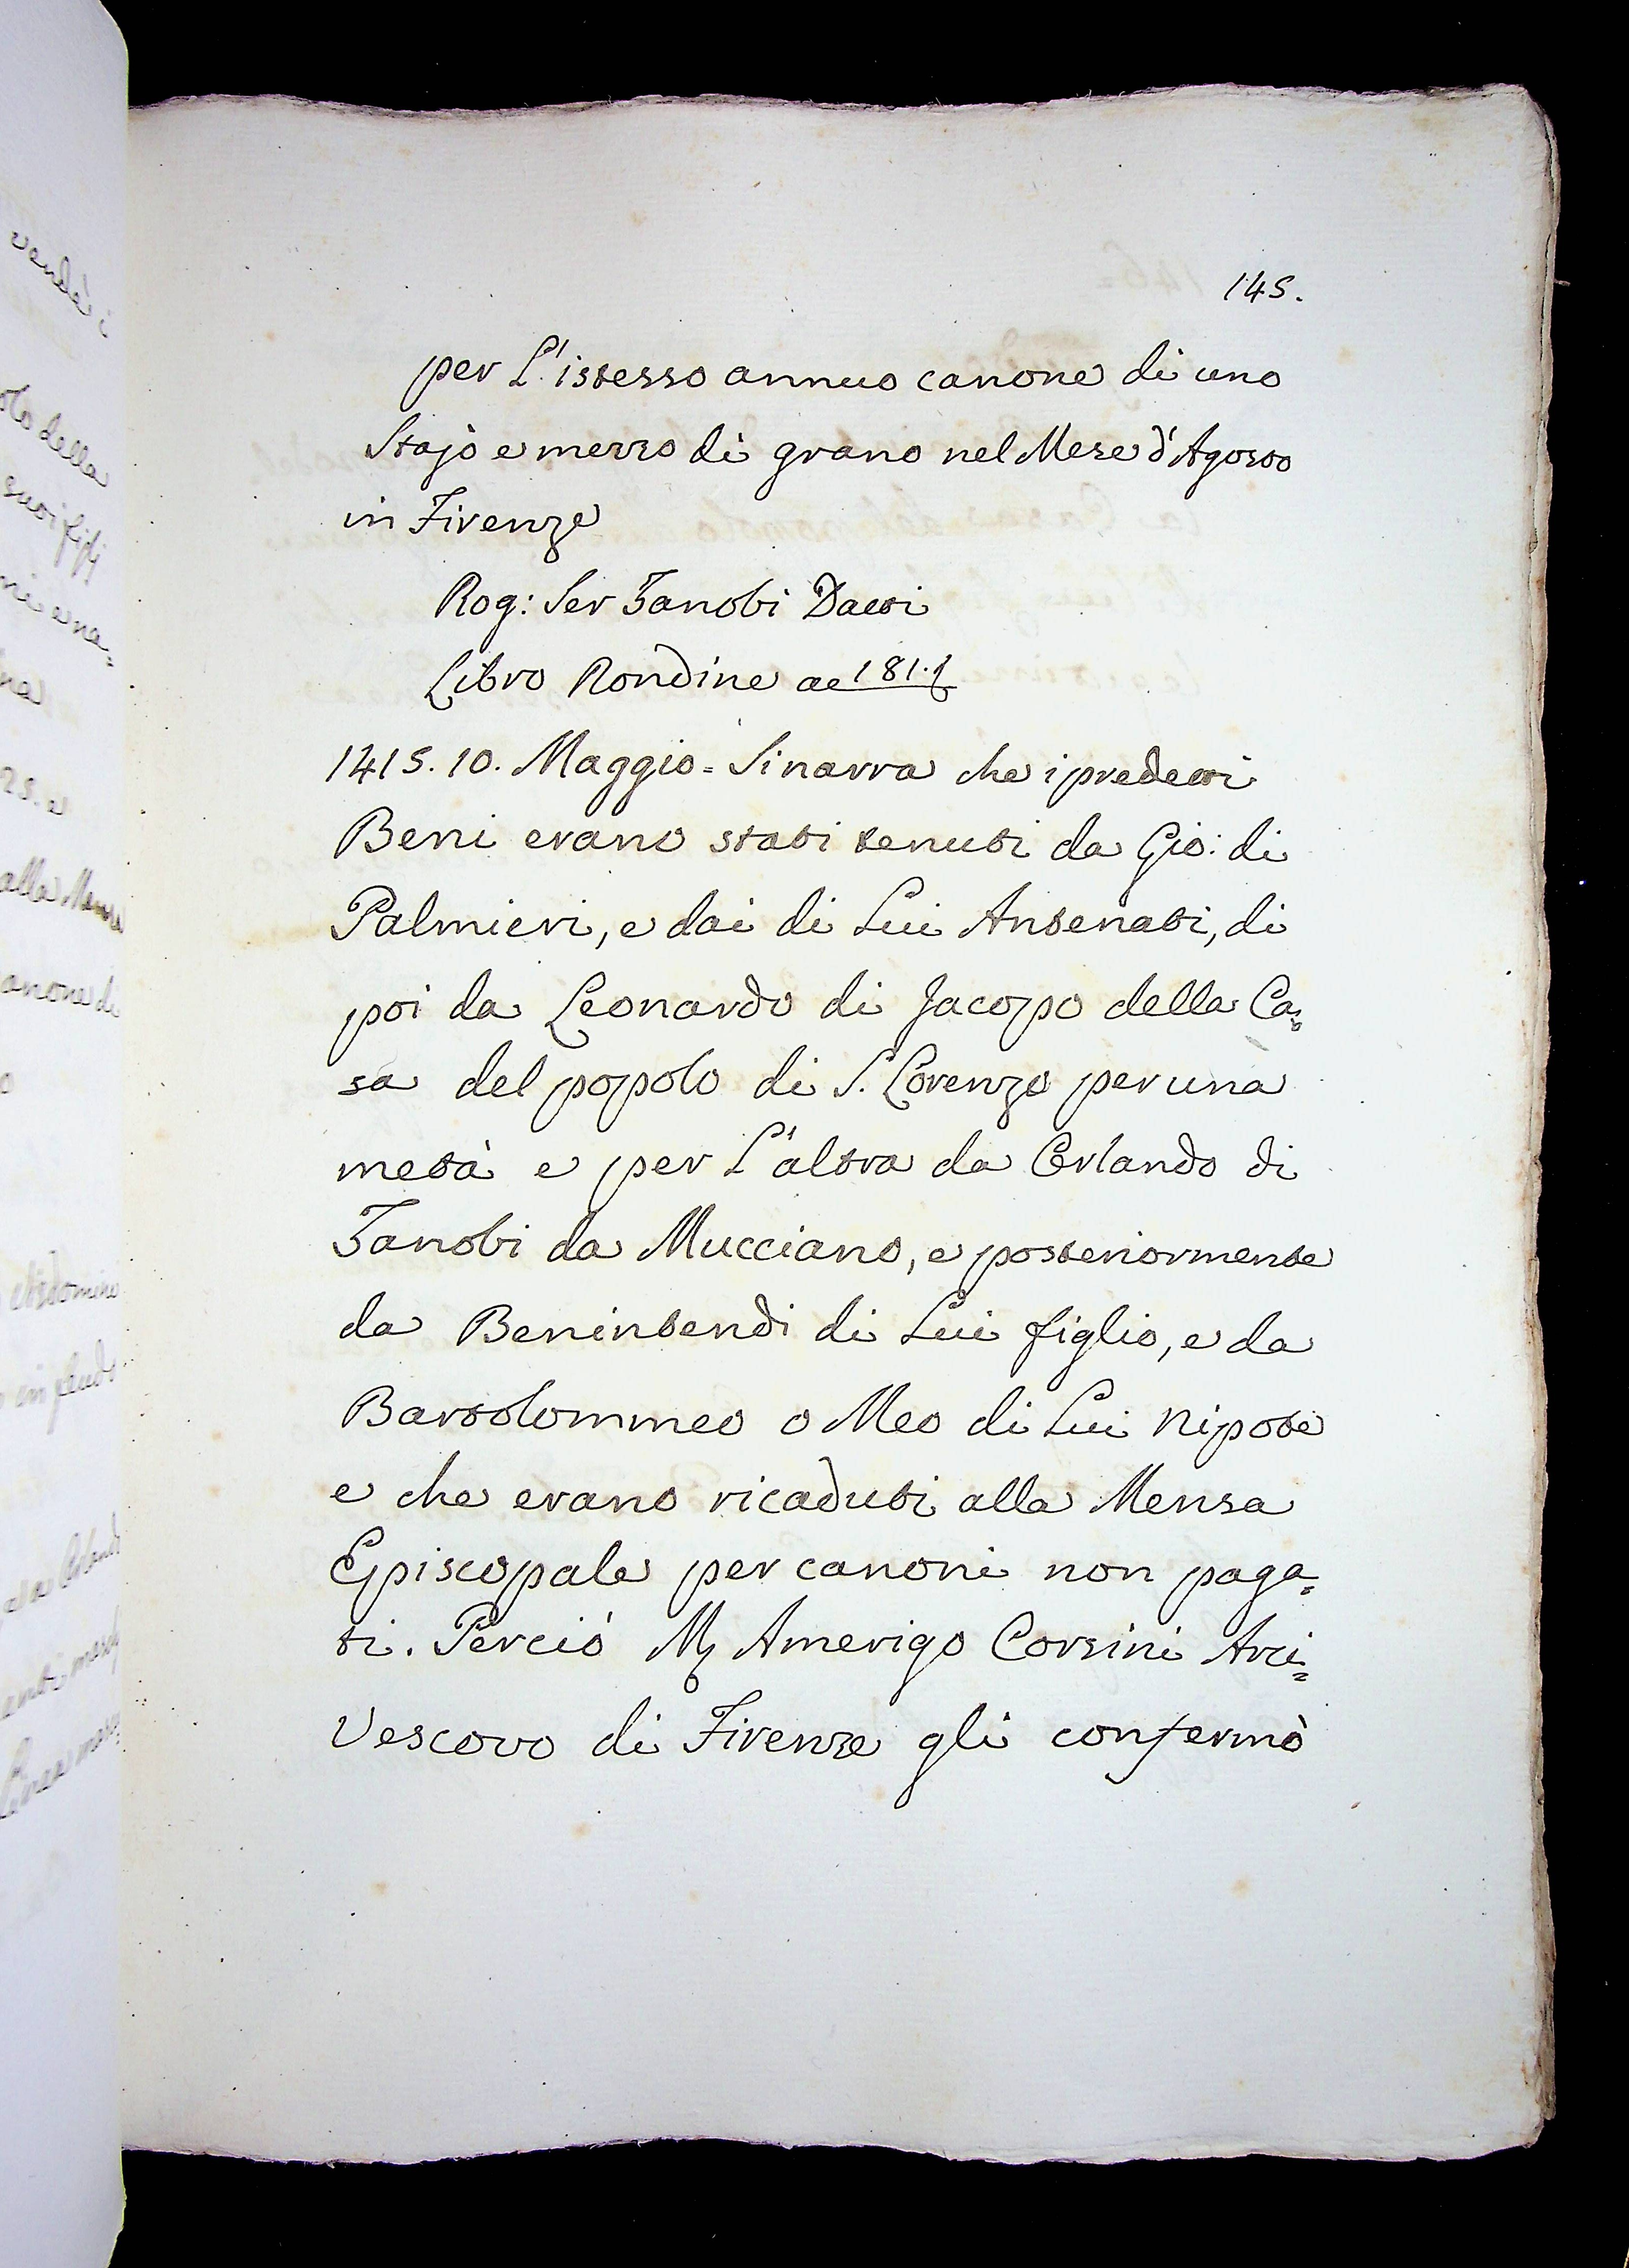 145.
per L'istesso annuo canone di uno
Stajo e mezzo di grano nel Mese d'Agosto
in Firenze
Rog: Ser Zanobi Datti
Libro Rondine a
1415. 10. Maggio = Si narra che i predetti
Beni erano stati tenuti da Gio: di
Palmieri, e dai di Lui Antenati, di
poi da Leonardo di Jacopo della Ca=
sa del popolo di S. Lorenzo per una
metà e per L'altra da Orlando di
Zanobi da Mucciano, e posteriormente
da Benintendi di Lui figlio, e da
Bartolommeo o Meo di Lui Nipote
e che erano ricaduti alla Mensa
Episcopale per canoni non paga=
ti. Perciò M. Amerigo Corsini Arci=
Vescovo di Firenze gli confermò